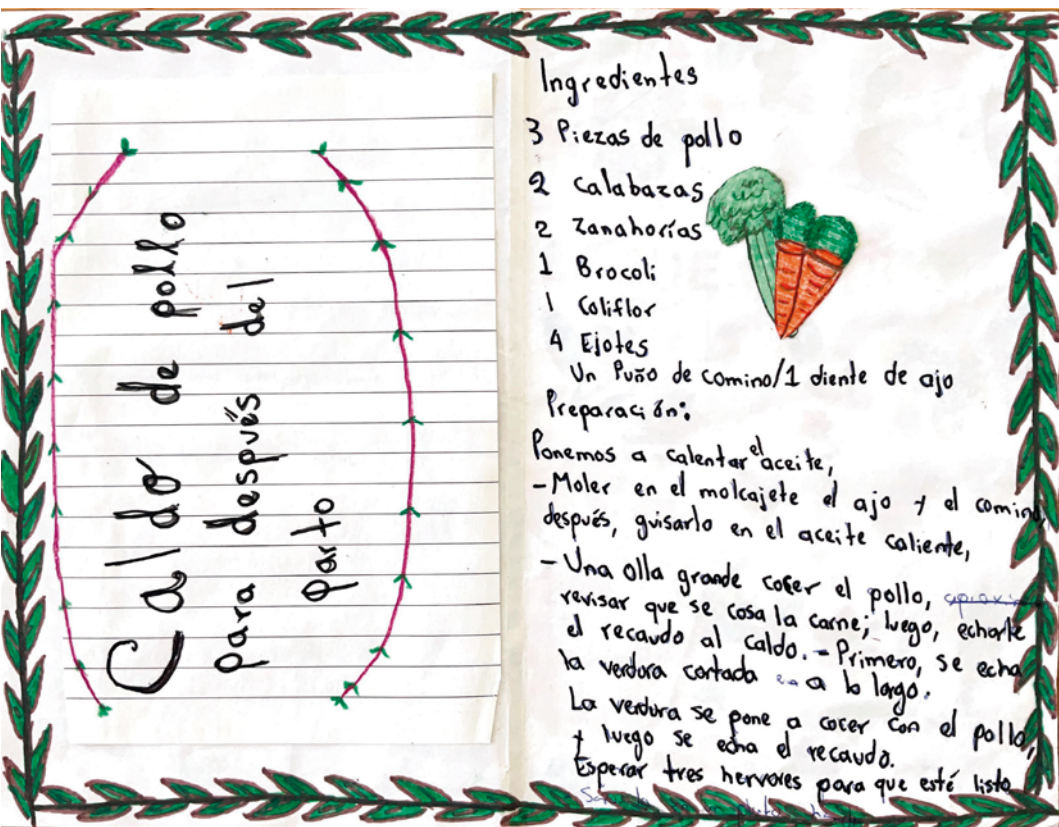 Caldo de pollo
para después del
parto
Ingredientes
3 Piezas de pollo
2 Calabazas
2 Zanahorías
1 Brocoli
1 Coliflor
4 Ejotes
Un Puño de comino/1 diente de ajo
Preparación:
Ponemos a calentar el aceite,
- Moler en el molcajete el ajo y el comino,
después, guisarlo en el aceite caliente,
- Una olla grande cocer el pollo,
revisar que se cosa la carne; luego, echarle
el recaudo al caldo. - Primero, se echa
la verdura cortada a lo largo.
La verdura se pone a cocer con el pollo,
y luego se echa el recaudo.
Esperar tres hervores para que esté listo